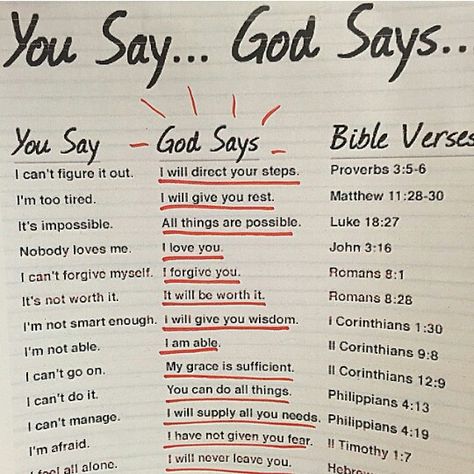 You Say... God Says..
You Say God Says Bible Verses
I can't figure it out. I will direct your steps. Proverbs 3:5-6
I'm too tired. I will give you rest. Matthew 11:28-30
It's impossible. All things are possible. Luke 18:27
Nobody loves me. I love you. John 3:16
I can't forgive myself. I forgive you. Romans 8:1
It's not worth it. It will be worth it. Romans 8:28
I'm not smart enough. I will give you wisdom. I Corinthians 1:30
I'm not able. I am able. II Corinthians 9:8
I can't go on. My grace is sufficient. II Corinthians 12:9
I can't do it. You can do all things. Philippians 4:13
I can't manage. I will supply all you needs. Philippians 4:19
I'm afraid. I have not given you fear. II Timothy 1:7
I feel all alone. I will never leave you.